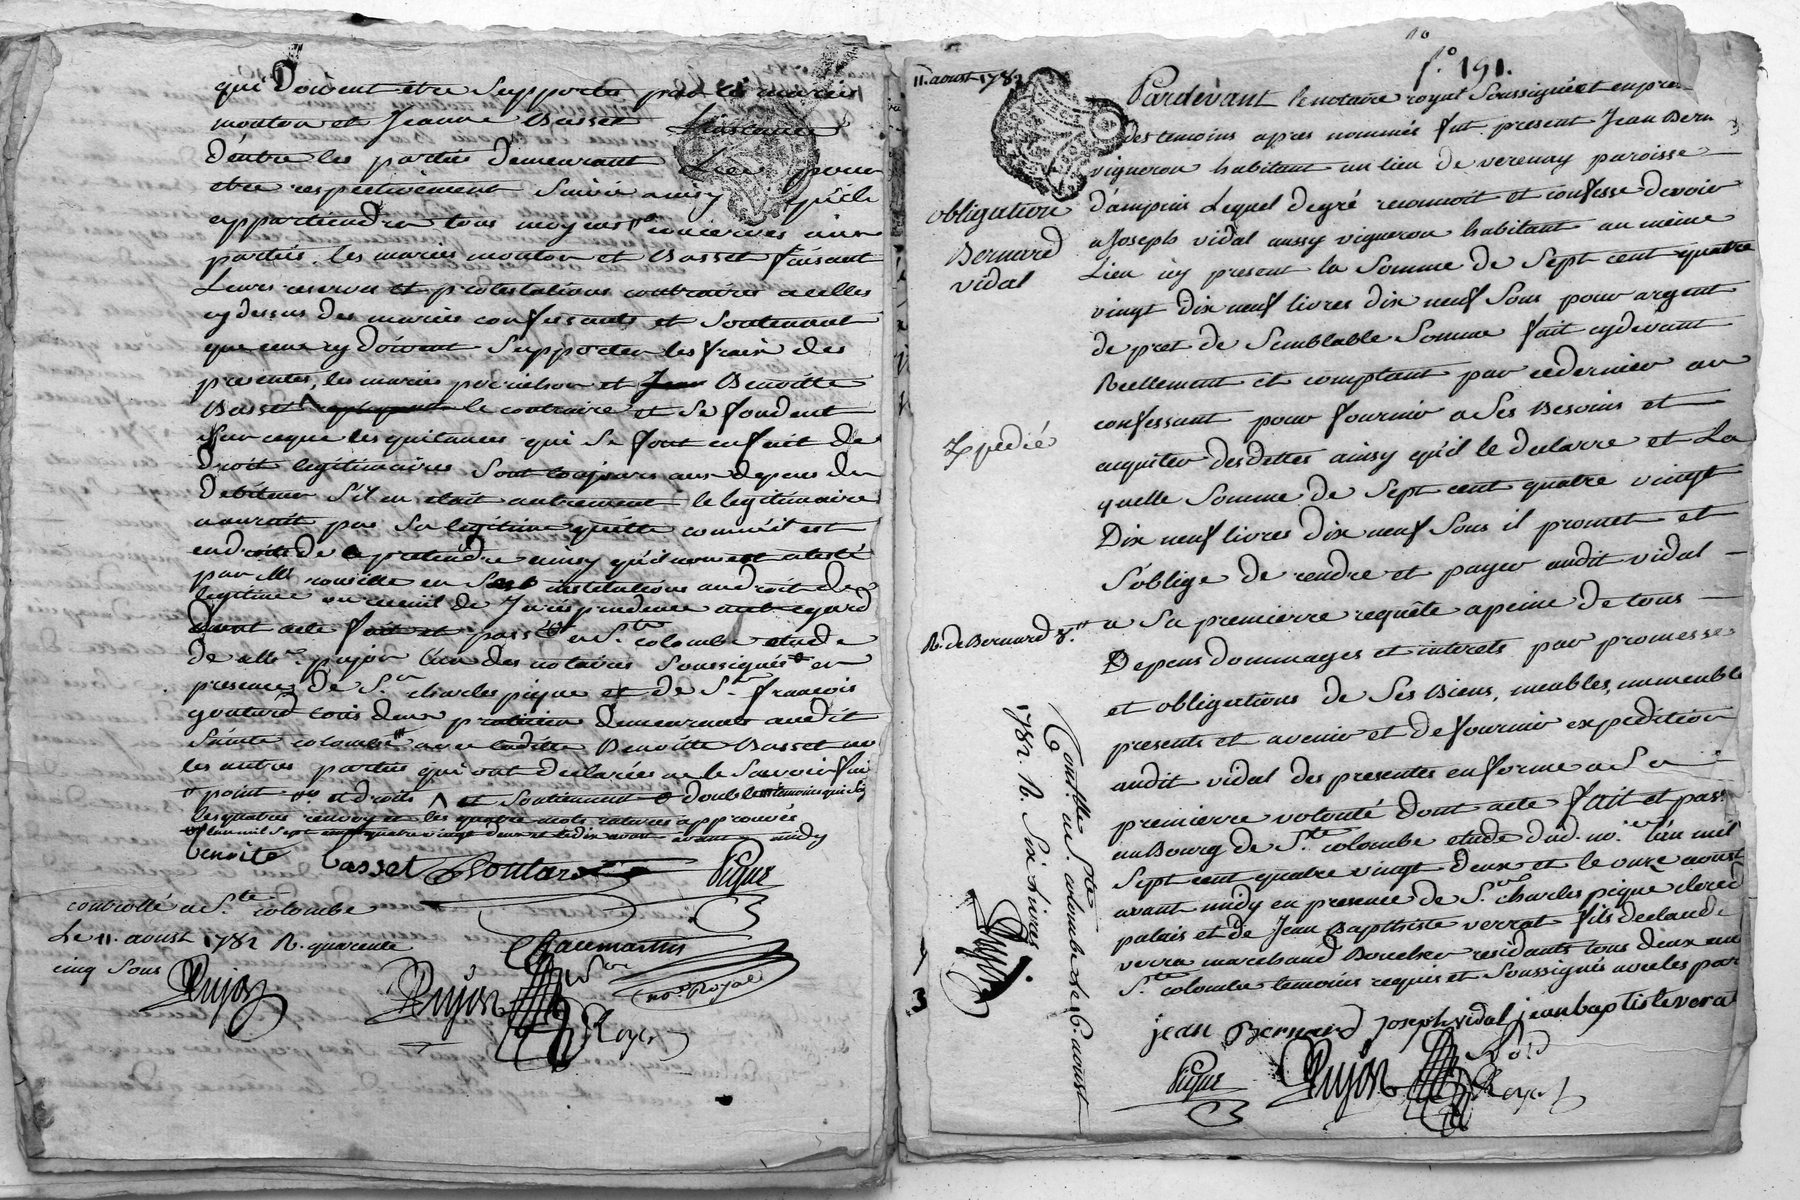 qui Doivent être Supportés par les mariés
mouton et Jeanne Basset
d'entre les parties demeurant pour
être respectivement Suivie ainsy qu'il
appartiendra tous moyens concervés aux
parties, les mariés mouton et Basset faisant
Leurs reserves et protestations contraires a celles
cy dessus des mariés confessants et Soutenant
que ceux cy doivent Supporter les frais des
presentes, les mariés et Benoitte
Basset le contraire et Se fondent
Sur ce que les quitances qui Se font en fait de
droit legitimaires Sont toujours aux depens du
Debiteur S'il en etoit autrement le legitimaire
n'auroit pas Sa legitime quitte comme il est
en droit de pretendre ainsy qu'il
par Me en Ses institutions au droit de
legitime ou receuil de Jurisprudence a cet egard
Dont acte fait et passé a Ste colombe etude
de Me pujon l'un des notaires Soussignés en
presence de Sr charles pique et de Sr françois
goutard tous deux demeurants audit
Sainte colombe avec laditte Benoitte Basset non
les autres parties qui ont declarées ne le Savoir fai
point et droits et Soutiennent double temoins qui
les quatres renvoy et les quatre mots raturés approuvés
l'an mil Sept cent quatre vingt deux et le dix aout avant midy
benoite basset Goutard pique
controllé a Ste colombe
Le 11. aoust 1782 R. quarente
cinq Sous Pujon
Chaumartin
Pujon nore Royal
nore Royal
fo 191.
11. aoust 1782
Pardevant le notaire royal Soussigné et en pre
des temoins apres nommés fut present Jean Bern
vigneron habitant au lieu de verenay paroisse
d'ampuis Lequel de gré reconnoit et confesse devoir
a Joseph vidal aussy vigneron habitant au même
Lieu icy present la Somme de Sept cent quatre
vingt Dix neuf livres dix neuf Sous pour argent
de pret de Semblable Somme fait cydevant
Reellement et comptant par ce dernier au
confessant pour fournir a Ses Besoins et
aquiter des dettes ainsy qu'il le declarre et La
quelle Somme de Sept cent quatre vingt
Dix neuf livres dix neuf Sous il promet et
S'oblige de rendre et payer audit vidal
a Sa premierre requête a peine de tous
Depens dommages et interets par promesse
et obligations de Ses Biens, meubles, immeuble
presents et avenir et de fournir expedition
audit vidal des presentes en forme a Sa
premierre volonté dont acte fait et pas
au Bourg de Ste colombe etude dud. nore l'an mil
Sept cent quatre vingt deux et le onze aoust
avant midy en presence de Sr charles pique clerc d
palais et de Jean Baptiste verrat fils de claude
verra marchand Boucher residants tous deux au
Ste colombe temoins requis et Soussignés avec les par
jean Bernard Joseph vidal jean baptiste vera
pique Pujon nore Royal
obligation
Bernard
vidal
Expedié
R. de Bernard 8.tt
Controllé a Ste colombe le 16 aoust
1782 R. Six livres
Pujon